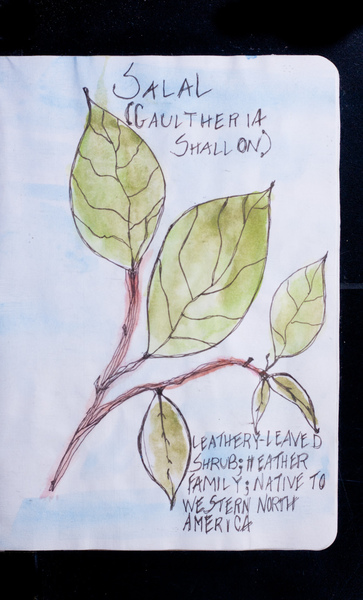 SALAL
(GAULTHERIA
SHALLON)
LEATHERY-LEAVED
SHRUB; HEATHER
FAMILY; NATIVE TO
WESTERN NORTH
AMERICA